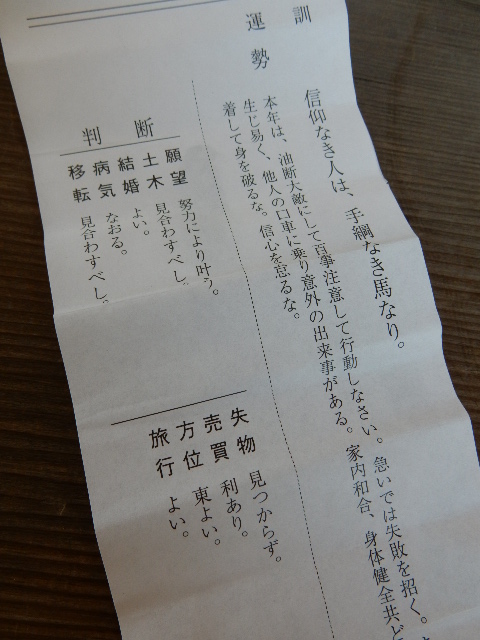 訓
信仰なき人は、手綱なき馬なり。
運勢
本年は、油断大敵にして百事注意して行動しなさい。急いでは失敗を招く。
生じ易く、他人の口車に乗り意外の出来事がある。家内和合、身体健全共ど
着して身を破るな。信心を忘るな。
判断
願望 努力により叶う。
土木 見合わすべし。
結婚 よい。
病気 なおる。
移転 見合わすべし。
失物 見つからず。
売買 利あり。
方位 東よい。
旅行 よい。